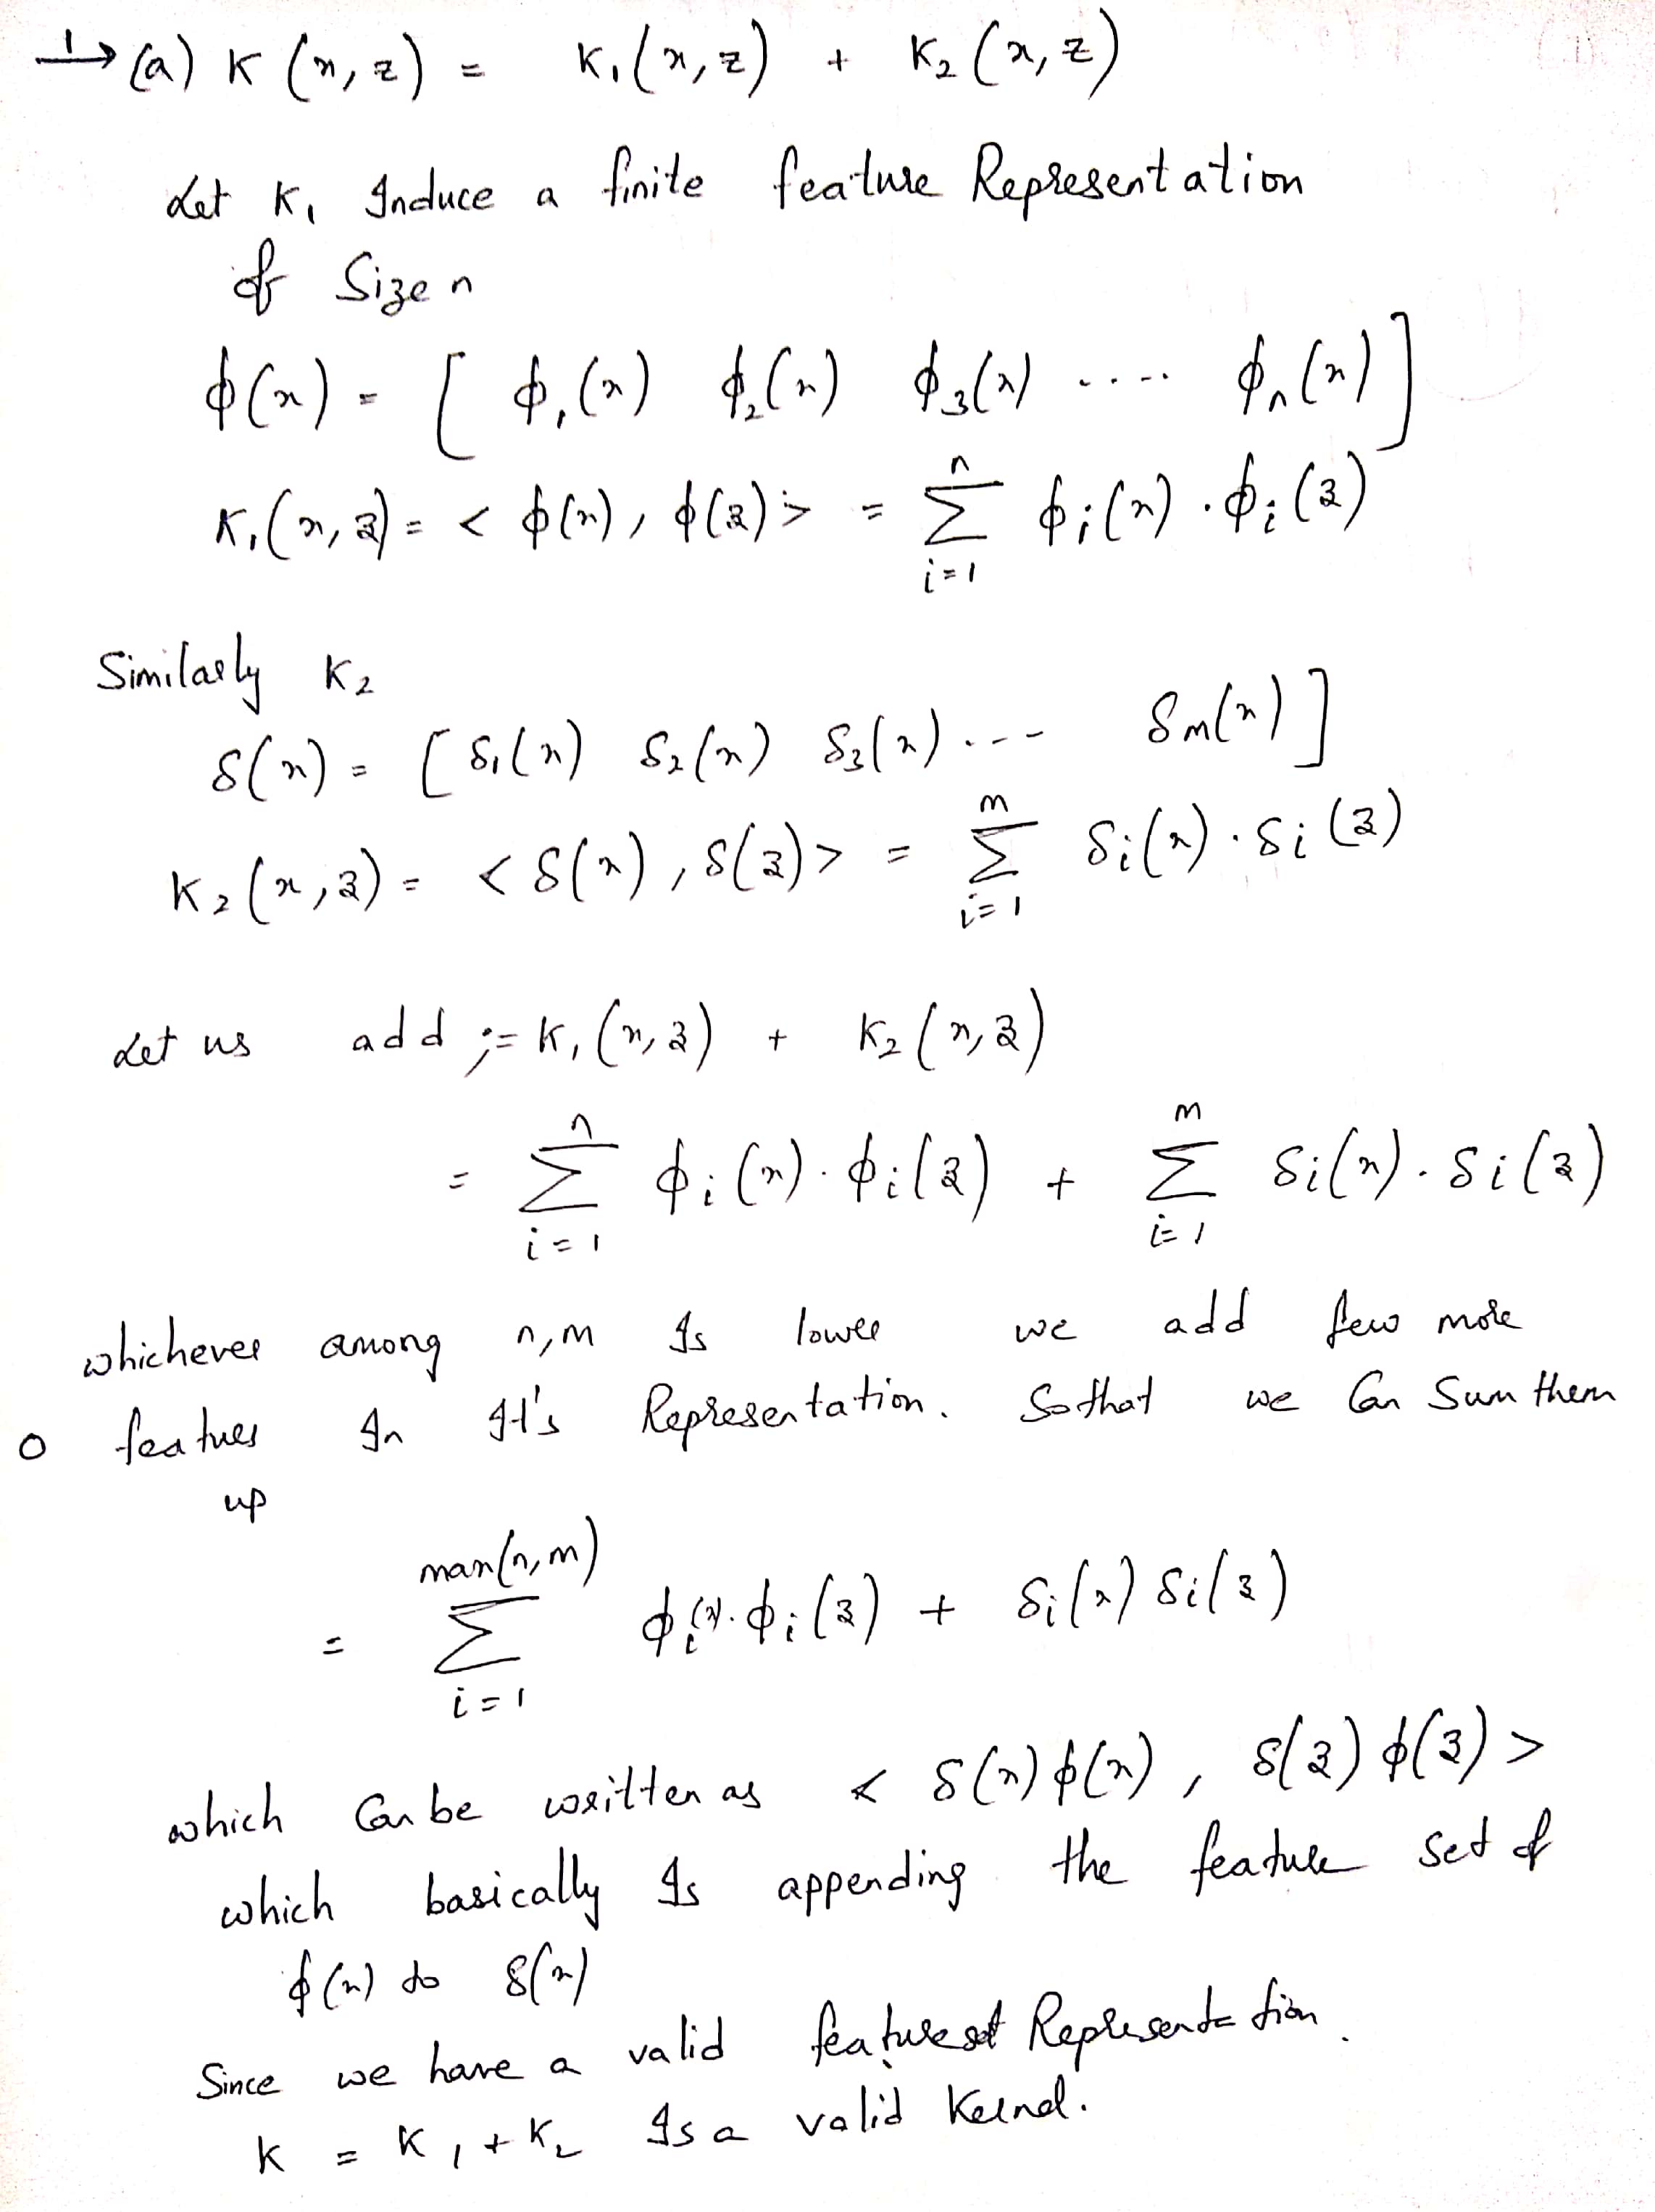 1→ (a) K (x, z) = K₁(x, z) + K₂ (x, z)
Let K₁ Induce a finite feature Representation
of Size n
ϕ(x) = [ ϕ₁(x) ϕ₂(x) ϕ₃(x) .... ϕₙ(x) ]
K₁(x, z) = < ϕ(x), ϕ(z) > = ∑ⁿᵢ₌₁ ϕᵢ(x) · ϕᵢ(z)
Similarly K₂
δ(x) = [ δ₁(x) δ₂(x) δ₃(x) ... δm(x) ]
K₂(x, z) = < δ(x), δ(z) > = ∑ᵐᵢ₌₁ δᵢ(x) · δᵢ(z)
Let us add ;= K₁(x, z) + K₂(x, z)
= ∑ⁿᵢ₌₁ ϕᵢ(x) · ϕᵢ(z) + ∑ᵐᵢ₌₁ δᵢ(x) · δᵢ(z)
whichever among n, m Is lower we add few more
0 features In It's Representation. So that we Can Sum them
up
= ∑ᵢ₌₁^max(n, m) ϕᵢ(x) · ϕᵢ(z) + δᵢ(x) δᵢ(z)
which Can be written as < δ(x) ϕ(x), δ(z) ϕ(z) >
which basically Is appending the feature set of
ϕ(x) to δ(x)
Since we have a valid feature set Representation.
K = K₁ + K₂ Is a valid Kernel.